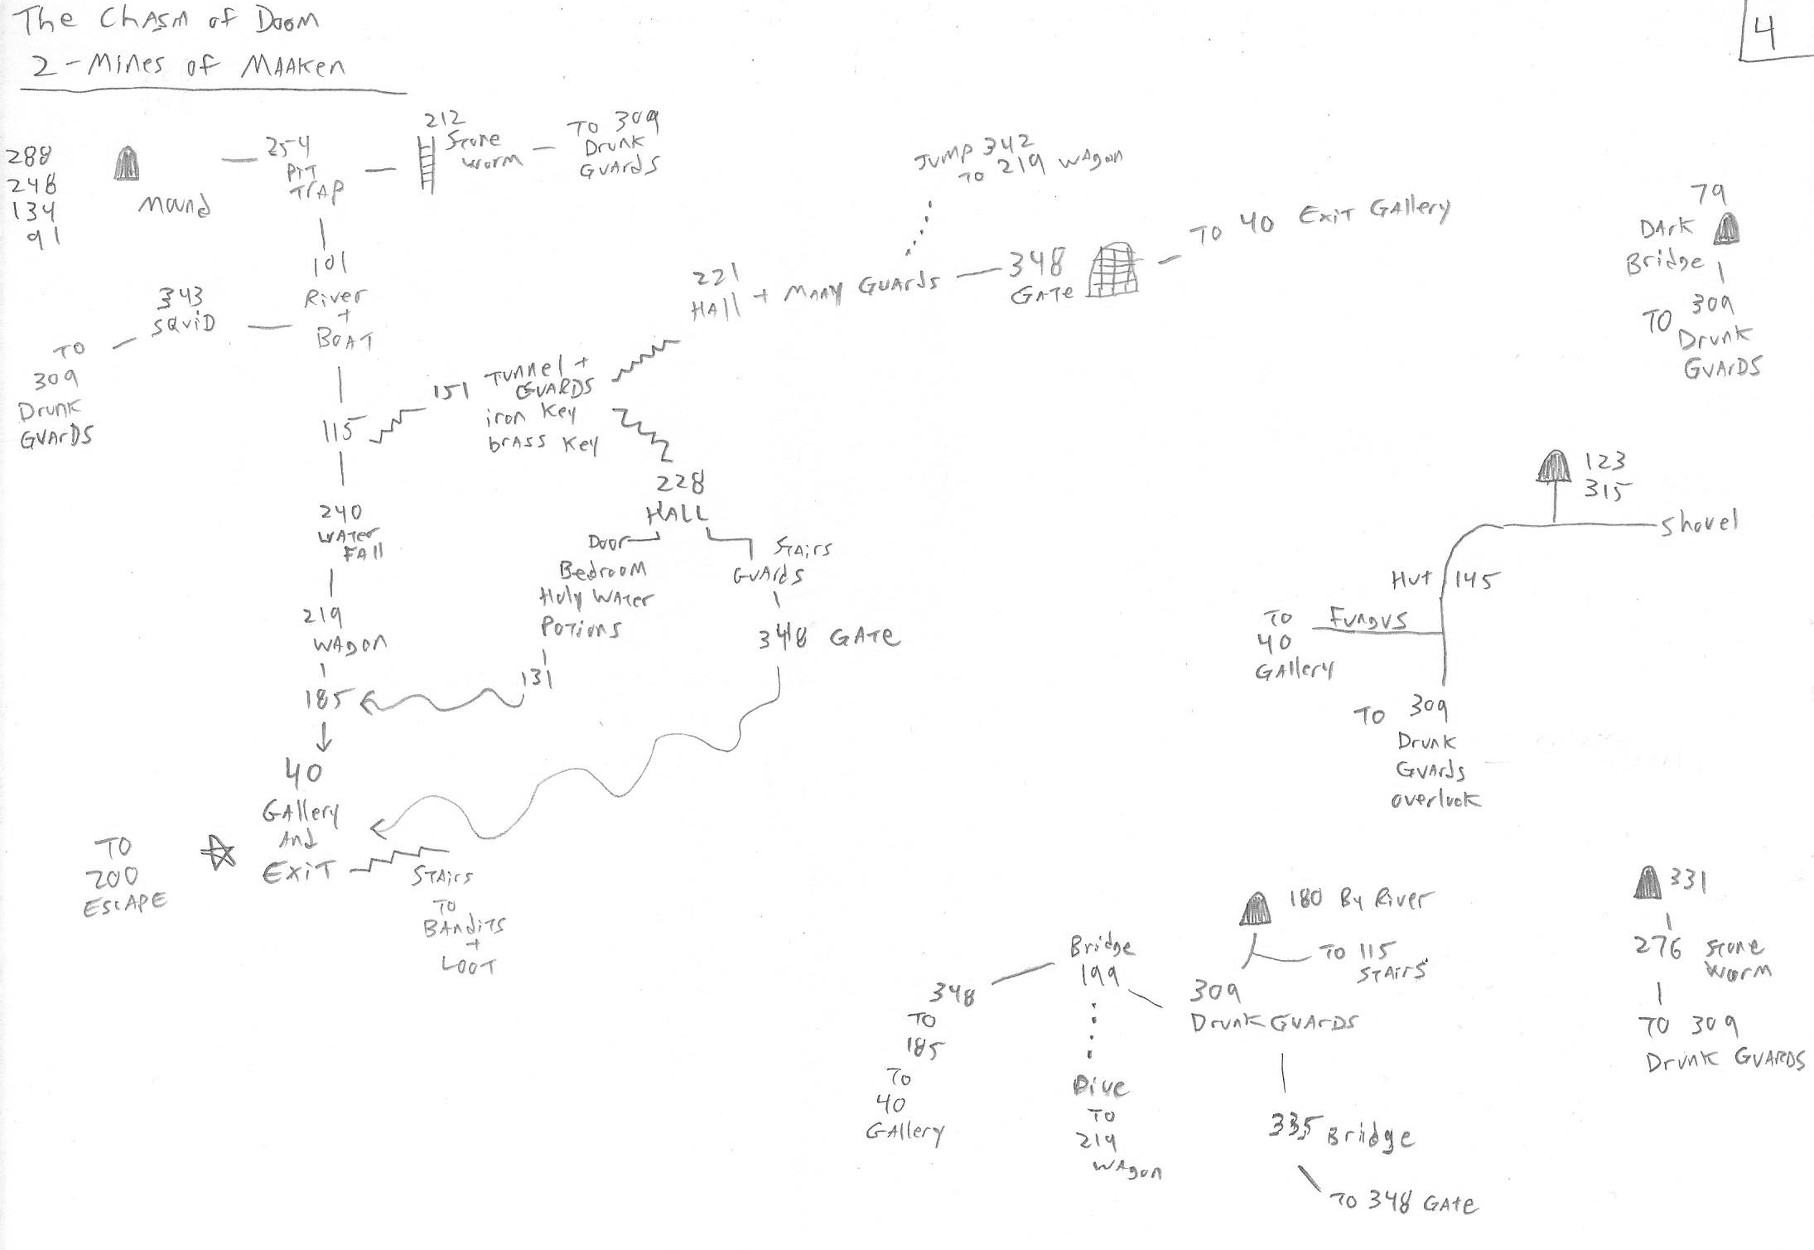 The Chasm of Doom
2-Mines of Maaken
4
288
248
134
91
Mound
254
Pit
Trap
212
Stone
Worm
To 309
Drunk
Guards
101
River
+
Boat
343
Squid
To
309
Drunk
Guards
115
151 Tunnel +
Guards
iron key
brass key
221
Hall + Many Guards
Jump 342
To 219 Wagon
348
Gate
To 40 Exit Gallery
228
Hall
Door
Bedroom
Holy Water
Potions
131
Stairs
Guards
348 Gate
240
Water
Fall
219
Wagon
185
40
Gallery
And
Exit
To
200
Escape
Stairs
To
Bandits
+
Loot
79
Dark
Bridge
To 309
Drunk
Guards
123
315
Shovel
Hut 145
Fungus
To
40
Gallery
To 309
Drunk
Guards
overlook
180 By River
To 115
Stairs
Bridge
199
309
Drunk Guards
348
To
185
To
40
Gallery
Dive
To
219
Wagon
335 Bridge
To 348 Gate
331
276 Stone
Worm
To 309
Drunk Guards